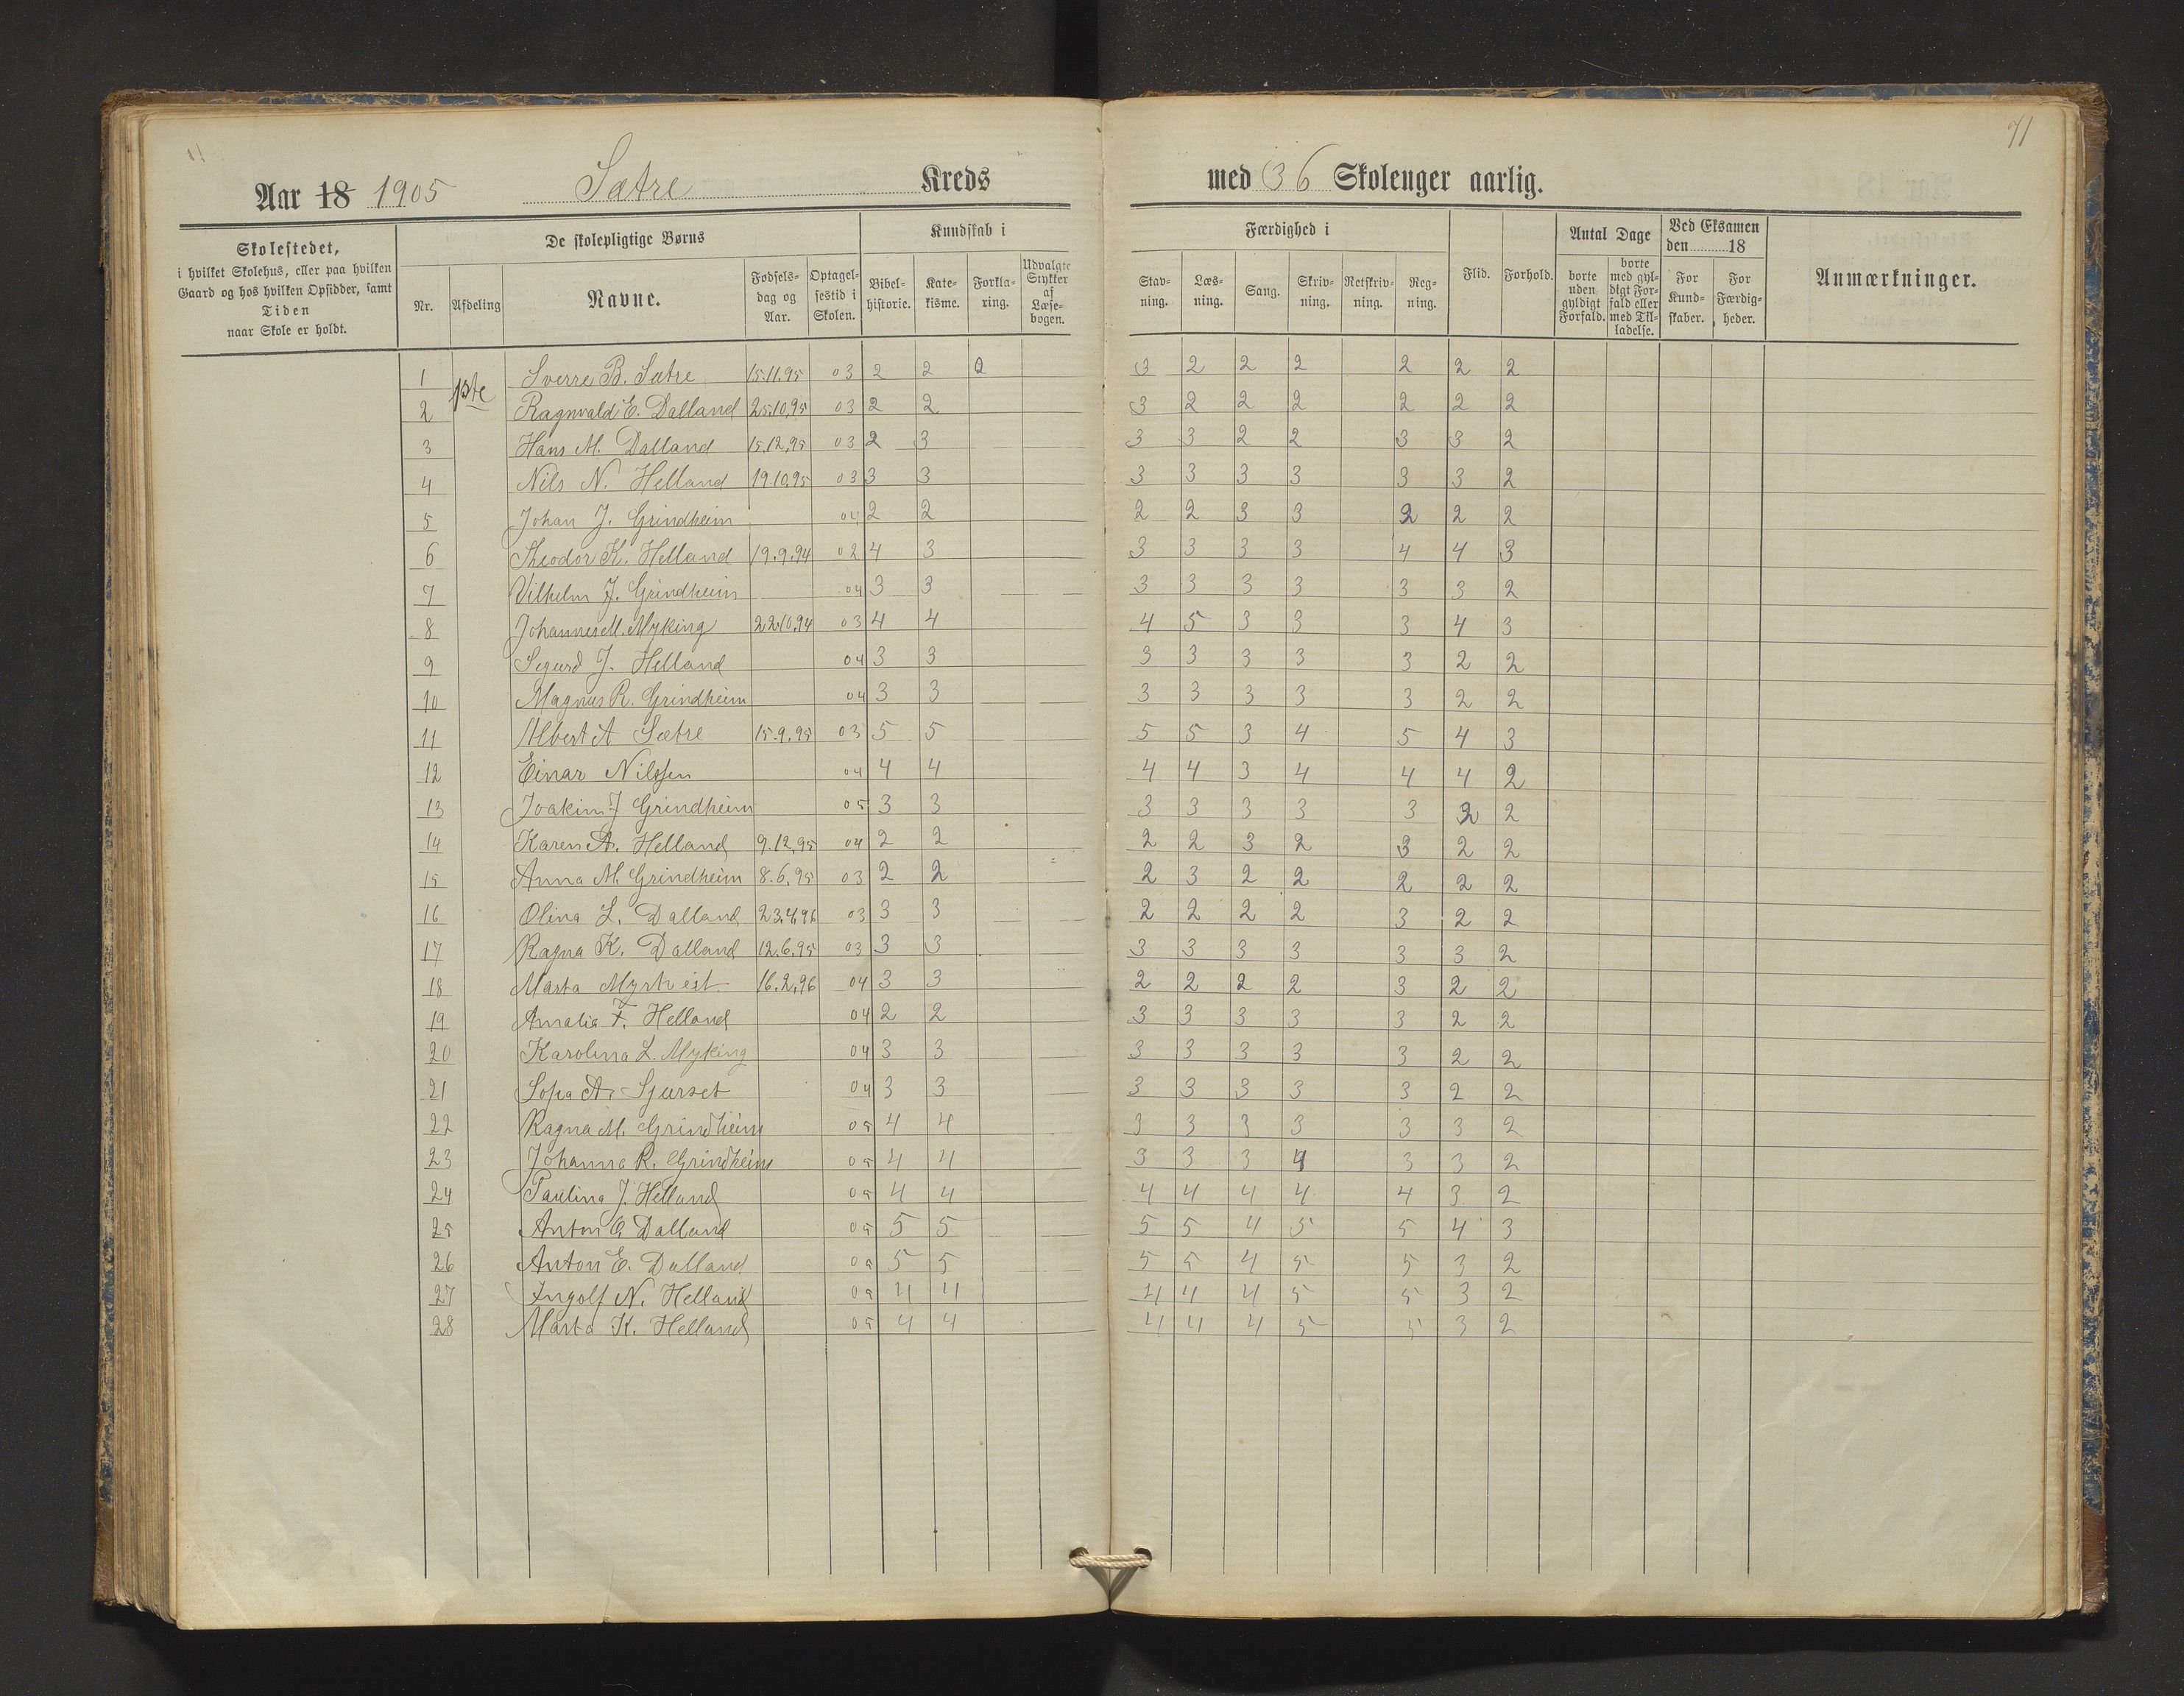 71
Aar 18 1905 Sætre Kreds med 36 Skoleuger aarlig.
Skolestedet, i hvilket Skolehus, eller paa hvilken Gaard og hos hvilken Opsidder, samt Tiden naar Skole er holdt.
De skolepligtige Børns
Nr. Afdeling Navne. Fødsels-dag og Aar. Optagel-sestid i Skolen.
Kundskab i
Bibel-historie. Kate-kisme. Forkla-ring. Udvalgte Stykker af Læse-bogen.
Færdighed i
Stav-ning. Læs-ning. Sang. Skriv-ning. Retskriv-ning. Reg-ning.
Flid. Forhold.
Antal Dage
borte uden gyldigt Forfald. borte med gyl-digt For-fald eller med Til-ladelse.
Ved Eksamen den 18
For Kund-skaber. For Færdig-heder.
Anmærkninger.
1 1ste Sverre B. Sætre 15.11.95 03 2 2 2 3 2 2 2 2 2 2
2 Ragnvald E. Dalland 25.10.95 03 2 2 3 2 2 2 2 2 2
3 Hans M. Dalland 15.12.95 03 2 3 3 3 2 2 3 3 2
4 Nils N. Helland 19.10.95 03 3 3 3 3 3 3 3 3 2
5 Johan J. Grindheim 04 2 2 2 2 3 3 2 2 2
6 Theodor K. Helland 19.9.94 02 4 3 3 3 3 3 4 4 3
7 Vilhelm J. Grindheim 04 3 3 3 3 3 3 3 3 2
8 Johannes M. Myking 22.10.94 03 4 4 4 5 3 3 3 4 3
9 Sigurd J. Helland 04 3 3 3 3 3 3 3 2 2
10 Magnus R. Grindheim 04 3 3 3 3 3 3 3 2 2
11 Albert A Sætre 15.9.95 03 5 5 5 5 3 4 5 4 3
12 Einar Nilssen 04 4 4 4 4 3 4 4 4 2
13 Joakim J Grindheim 05 3 3 3 3 3 3 3 2 2
14 Karen A. Helland 9.12.95 04 2 2 2 2 3 2 3 2 2
15 Anna M. Grindheim 8.6.95 03 2 2 2 3 2 2 2 2 2
16 Olina L. Dalland 23.4.96 03 3 3 2 2 2 2 3 2 2
17 Ragna K. Dalland 12.6.95 03 3 3 3 3 3 3 3 3 2
18 Marta Myrtveit 16.2.96 04 3 3 2 2 2 2 3 2 2
19 Amalia F. Helland 04 2 2 3 3 3 3 3 2 2
20 Karolina L. Myking 04 3 3 3 3 3 3 3 2 2
21 Sofia A. Sjurset 04 3 3 3 3 3 3 3 2 2
22 Ragna M. Grindheim 05 4 4 3 3 3 3 3 3 2
23 Johanna R. Grindheim 05 4 4 3 3 3 4 3 3 2
24 Paulina J. Helland 05 4 4 4 4 4 4 4 3 2
25 Anton Dalland 05 5 5 5 5 4 5 5 4 3
26 Anton E. Dalland 05 5 5 5 5 4 5 5 3 2
27 Ingolf N. Helland 05 4 4 4 4 4 5 5 3 2
28 Marta K. Helland 05 4 4 4 4 4 5 5 3 2